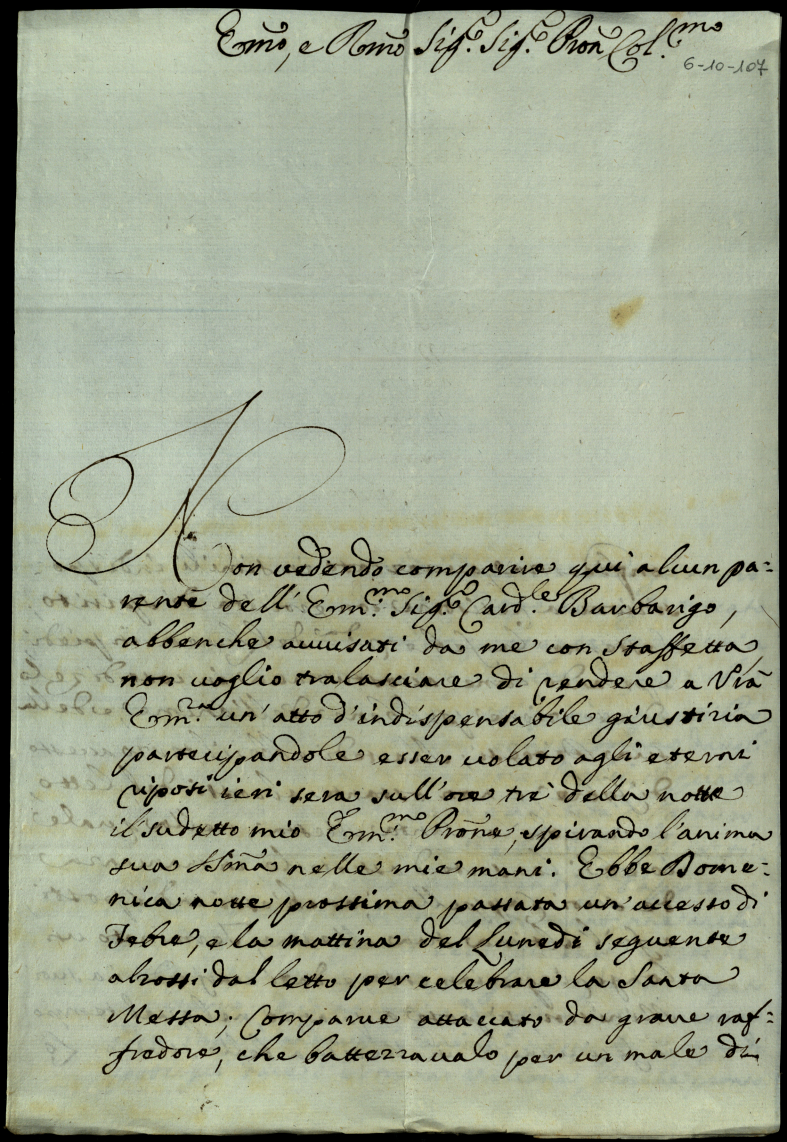 Emo, e Rmo Sig.e Sig.e Pron Col.mo
6-10-107
Non vedendo comparire qui alcun pa=
rente dell' Erm.mo Sig.e Card.le Barbarigo,
abbenche avvisati da me con Staffetta,
non voglio tralasciare di rendere a Vrã
Erm.za un'atto d'indispensabile giustizia
partecipandole esser volato agli eterni
riposi ieri sera sull'ore trè della notte
il sudetto mio Erm.mo Prõne, spirando l'anima
sua Ssm̃a nelle mie mani. Ebbe Dome=
nica notte prossima passata un'accesso di
Febre, e la mattina del Lunedì seguente
alzossi dal letto per celebrare la Santa
Messa; Comparve attaccato da grave raf=
fredore, che battezzavalo per un male di